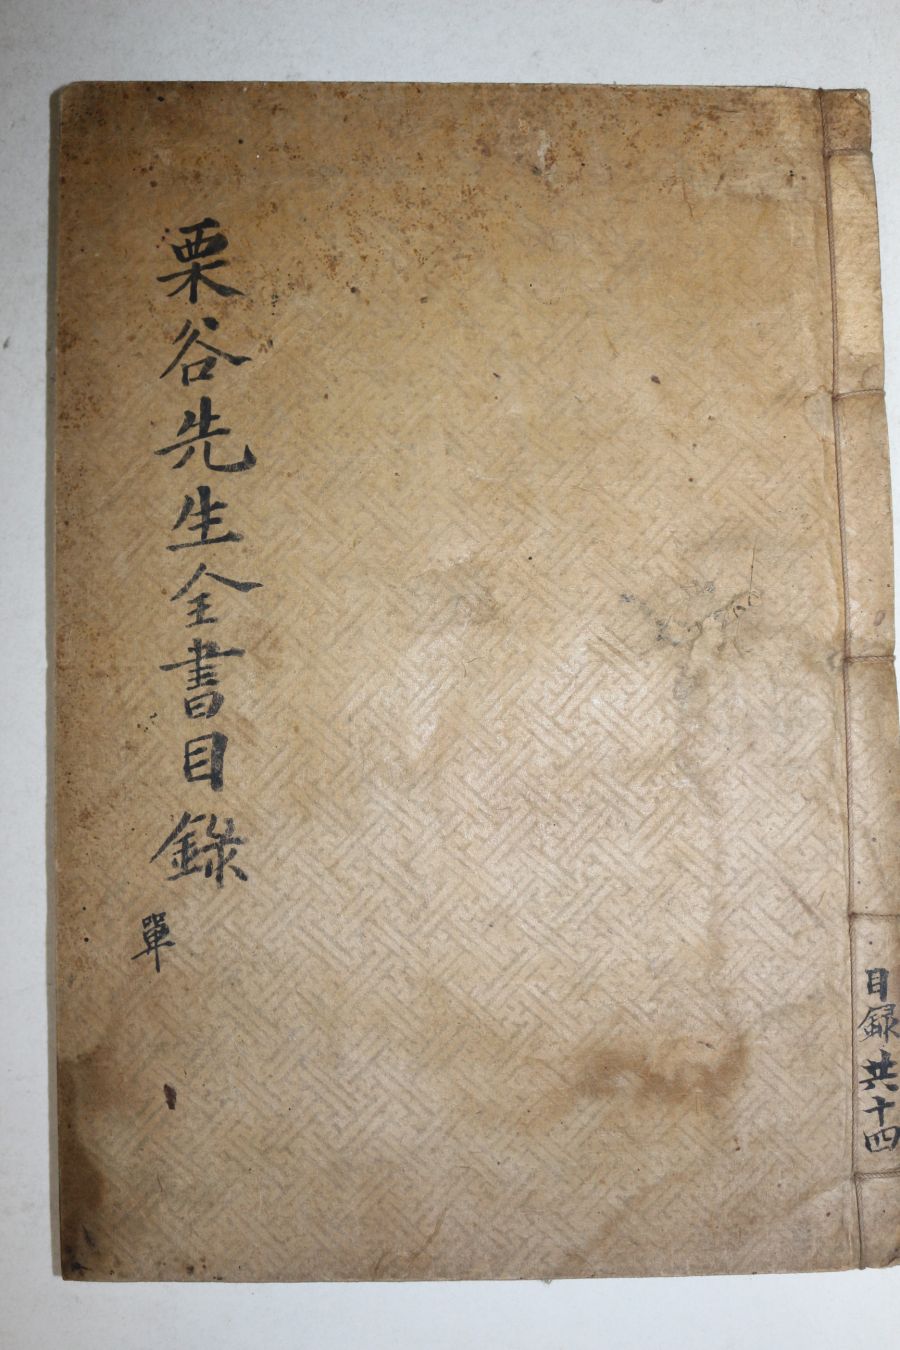 栗谷先生全書目錄
單
目録共十四